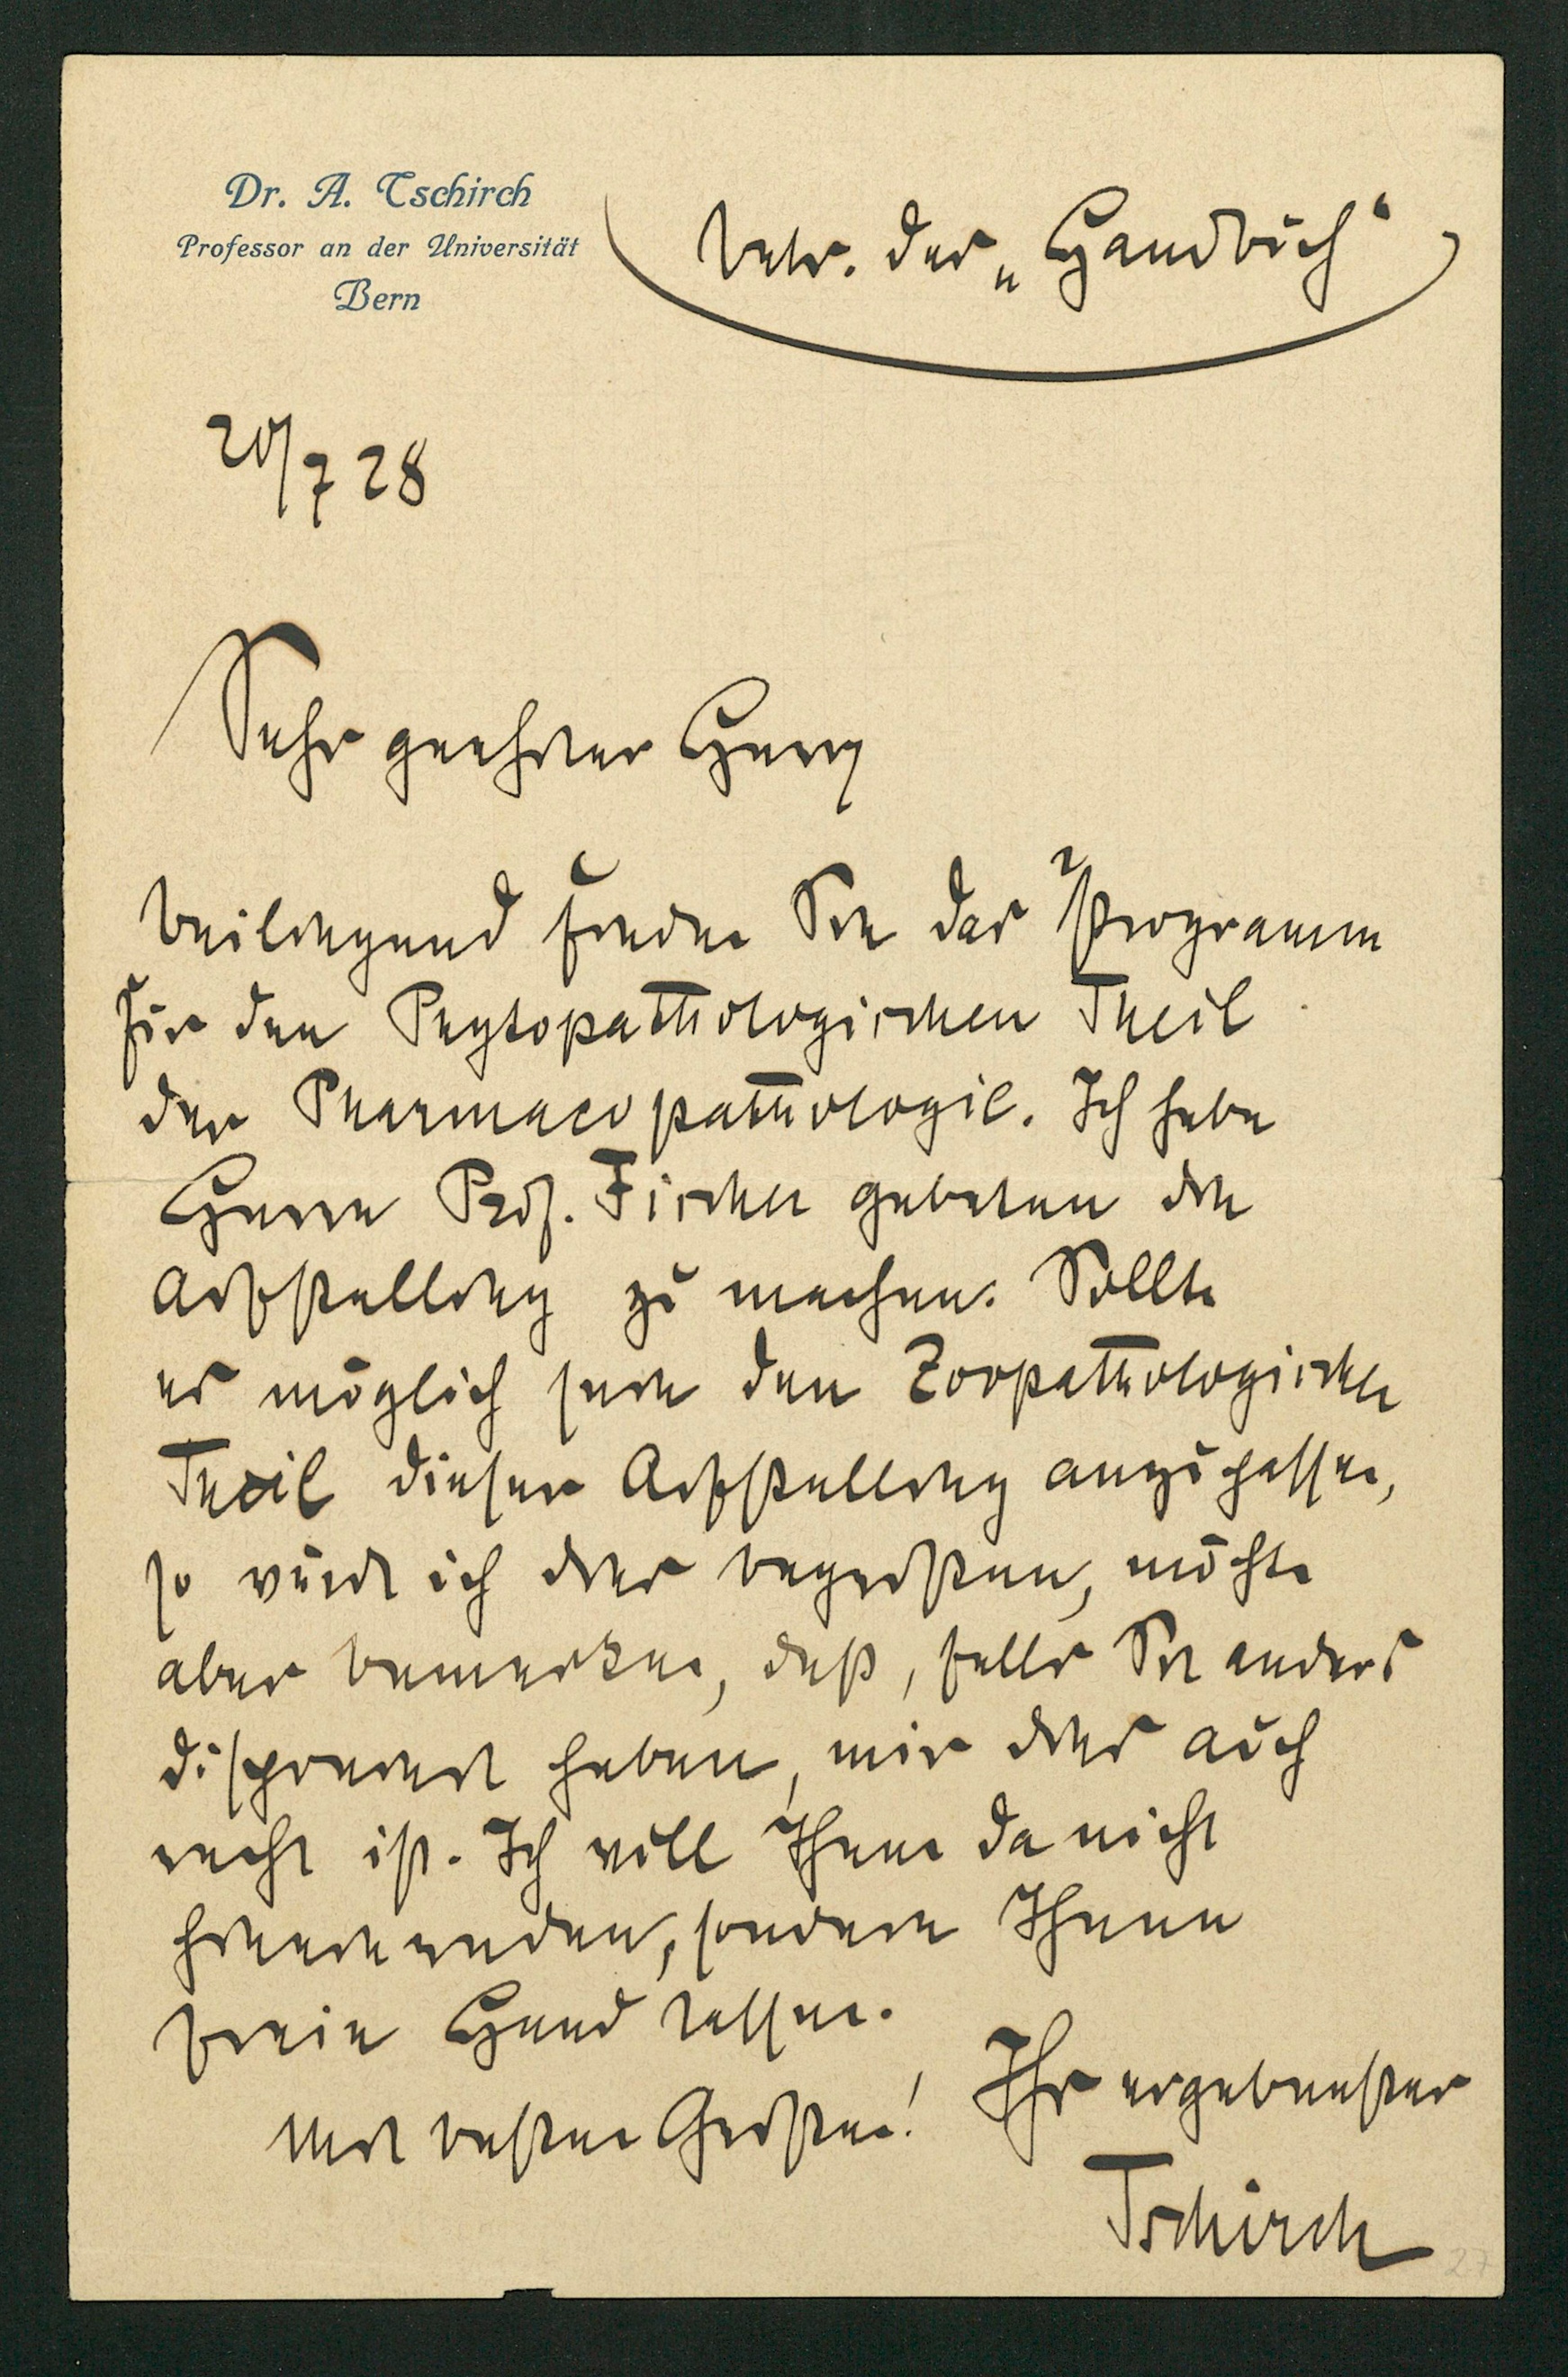 Dr. A. Tschirch
Professor an der Universität
Bern
betr. das „Handbuch“
20/7 28
Sehr geehrter Herr,
beiliegend finden Sie das Programm
für den Phytopathologischen Theil
der Pharmacopathologie. Ich habe
Herrn Prof. Fischer gebeten die
Aufstellung zu machen. Sollte
es möglich sein den Zoopathologischen
Theil dieser Aufstellung anzupassen,
so würde ich dies begrüßen, möchte
aber bemerken, daß, falls Sie anders
disponiert haben, mir dies auch
recht ist. Ich will Ihnen da nicht
hineinreden, sondern Ihnen
freie Hand lassen.
Mit besten Grüßen!
Ihr ergebenster
Tschirch
27